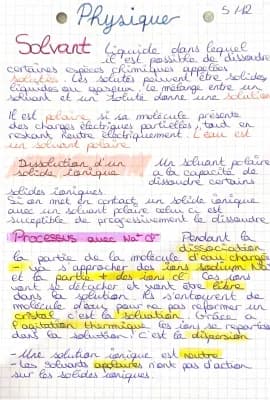 Physique
5/12
Solvant Liquide dans lequel
il est possible de dissoudre
certaines espèces chimiques appelées
solutés. Les solutés peuvent être solides,
liquides ou gazeux. Le mélange entre un
solvant et un soluté donne une solution
Il est polaire, si sa molécule présente
des charges électriques partielles, tout en
restant neutre électriquement. L'eau est
un solvant polaire.
Dissolution d'un
solide ionique
Un solvant polaire
a la capacité de
dissoudre certains
solides ioniques.
Si on met en contact un solide ionique
avec un solvant polaire celui ci est
susceptible de progressivement le dissoudre
Processus avec Na+ Cl- Pendant la
dissociation
la partie de la molécule d'eau chargée
- va s'approcher des ions sodium Na+
et la partie + des ions Cl-. Ces ions
vont se détacher et vont être libre
dans la solution. Ils s'entourent de
molécule d'eau pour ne pas reformer un
cristal c'est la solvatation. Grâce à
l'agitation thermique les ions se repartis
dans la solution: c'est la dispersion
- Une solution ionique est neutre
- Les solvants apolaires n'ont pas d'action
sur les solides ioniques.